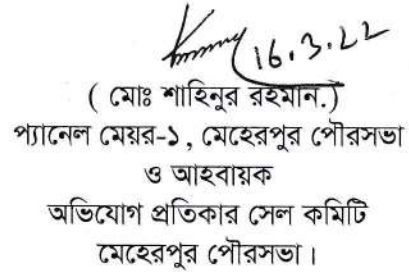 16.3.22
( মোঃ শাহিনুর রহমান.)
প্যানেল মেয়র-১, মেহেরপুর পৌরসভা
ও আহবায়ক
অভিযোগ প্রতিকার সেল কমিটি
মেহেরপুর পৌরসভা।